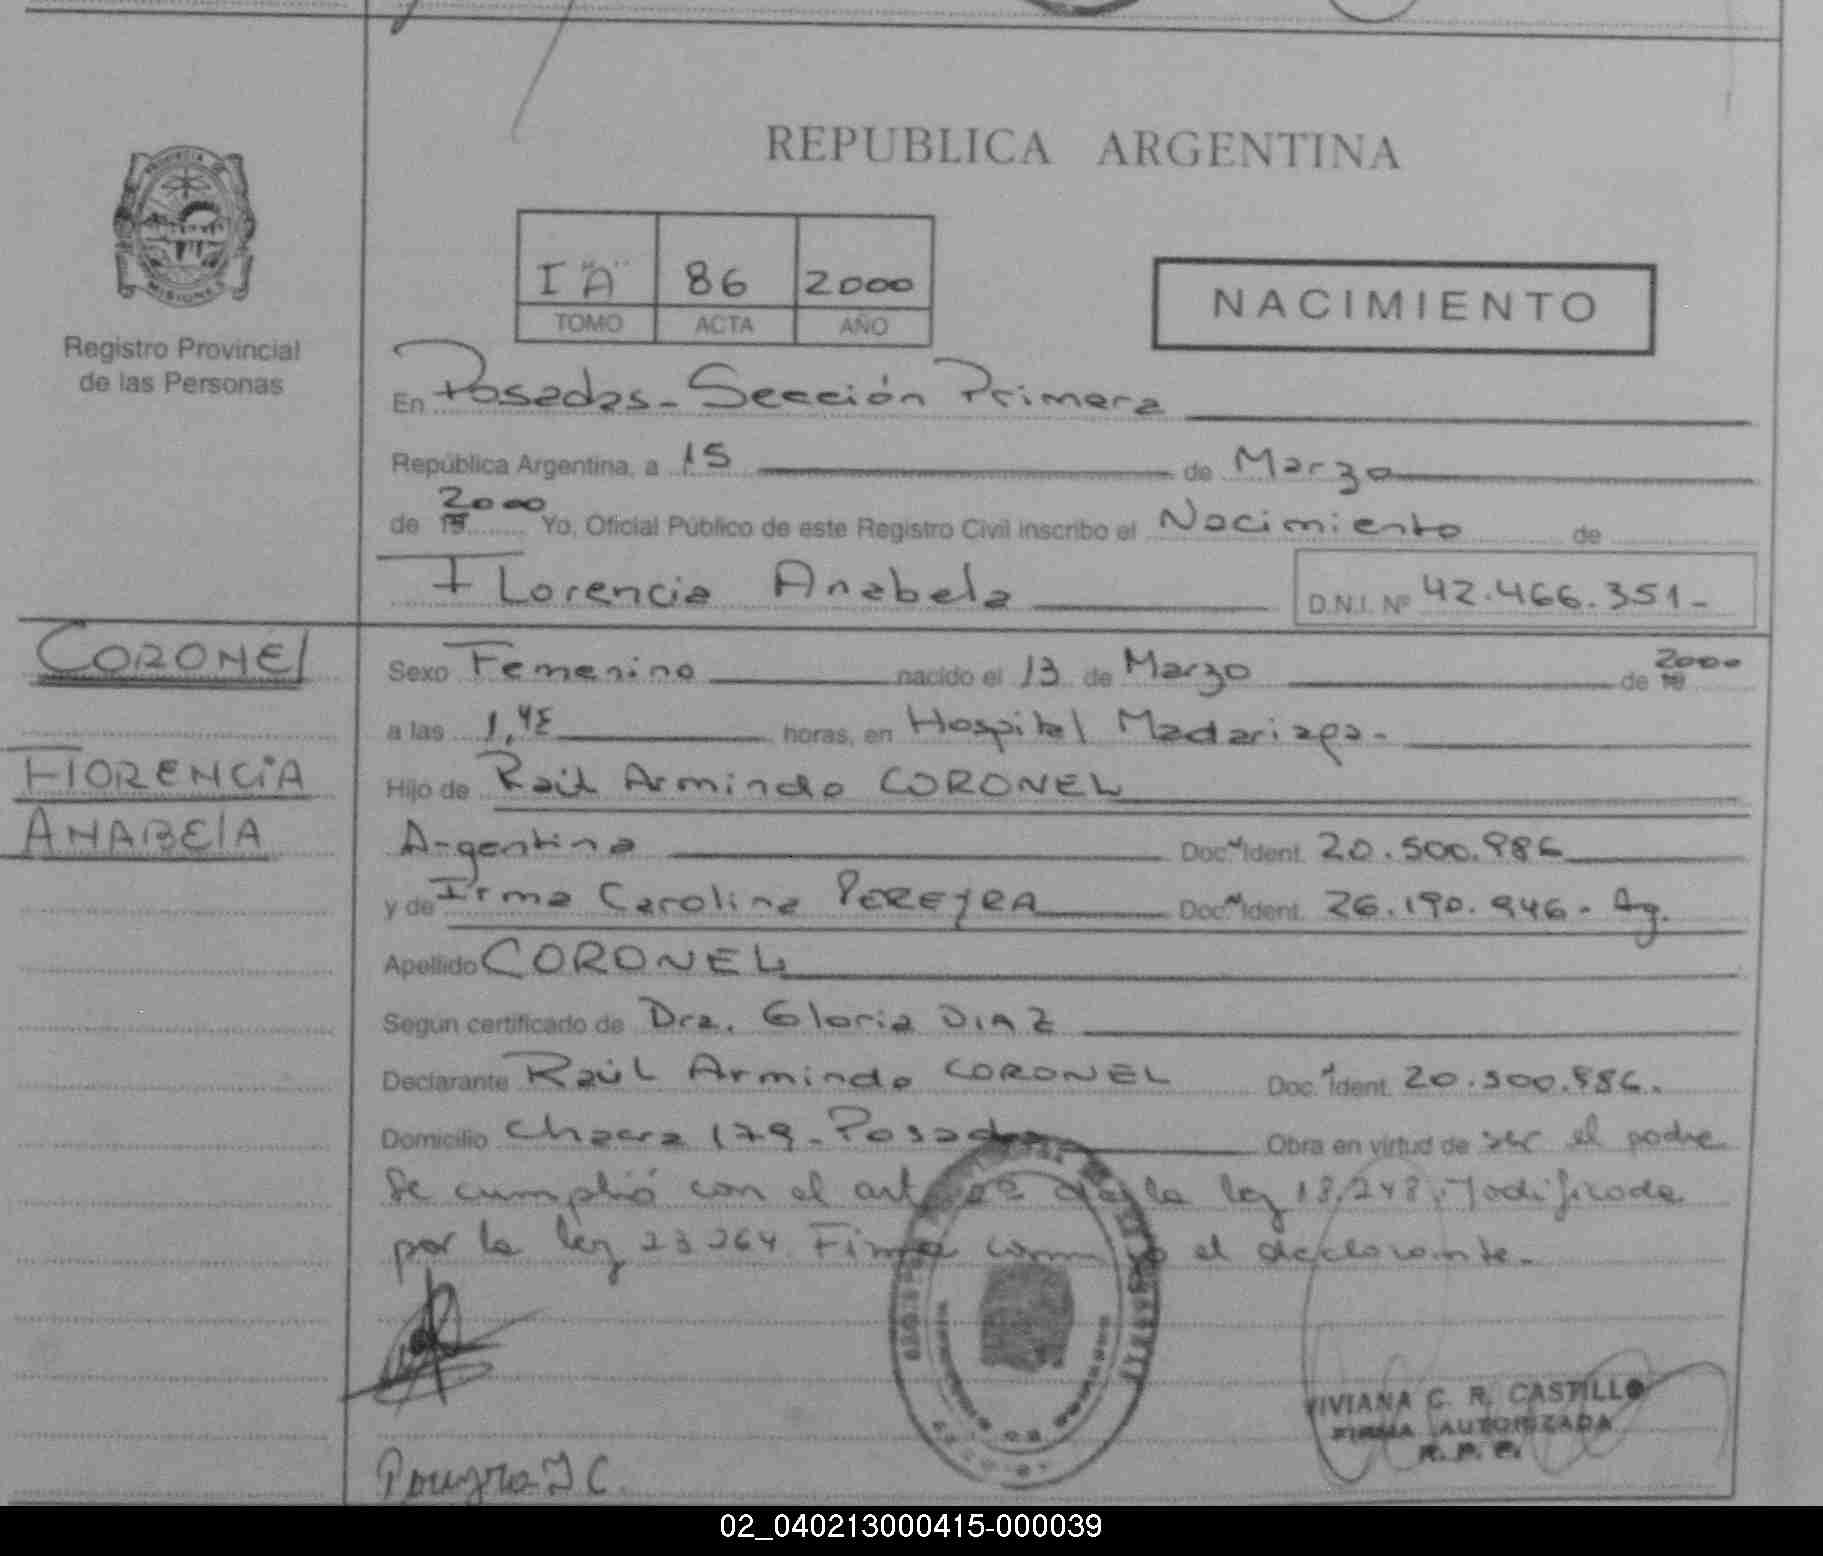 REPUBLICA ARGENTINA
PROVINCIA DE
MISIONES
Registro Provincial
de las Personas
I "A" 86 2000
TOMO ACTA AÑO
NACIMIENTO
En Posadas - Sección Primera
República Argentina, a 15 de Marzo
de 2000 Yo, Oficial Público de este Registro Civil inscribo el Nacimiento de
Florencia Anabela D.N.I. Nº 42.466.351-
CORONEL
FLORENCIA
ANABELA
Sexo Femenino nacido el 13 de Marzo de 2000
a las 1,45 horas, en Hospital Madariaga-
Hijo de Raúl Armindo CORONEL
Argentina Doc. Ident. 20.500.986
y de Irma Carolina PEREYRA Doc. Ident. 26.190.946- Ag.
Apellido CORONEL
Segun certificado de Dra. Gloria DIAZ
Declarante Raúl Armindo CORONEL Doc. Ident. 20.500.986.
Domicilio Chacra 179- Posadas Obra en virtud de ser el padre
Se cumplió con el art de la ley 18.248 Modificada
por la ley 23264. Firma conmigo el declarante-
VIVIANA C. R. CASTILLO
FIRMA AUTORIZADA
R. P. P.
Pereyra I C.
02_040213000415-000039